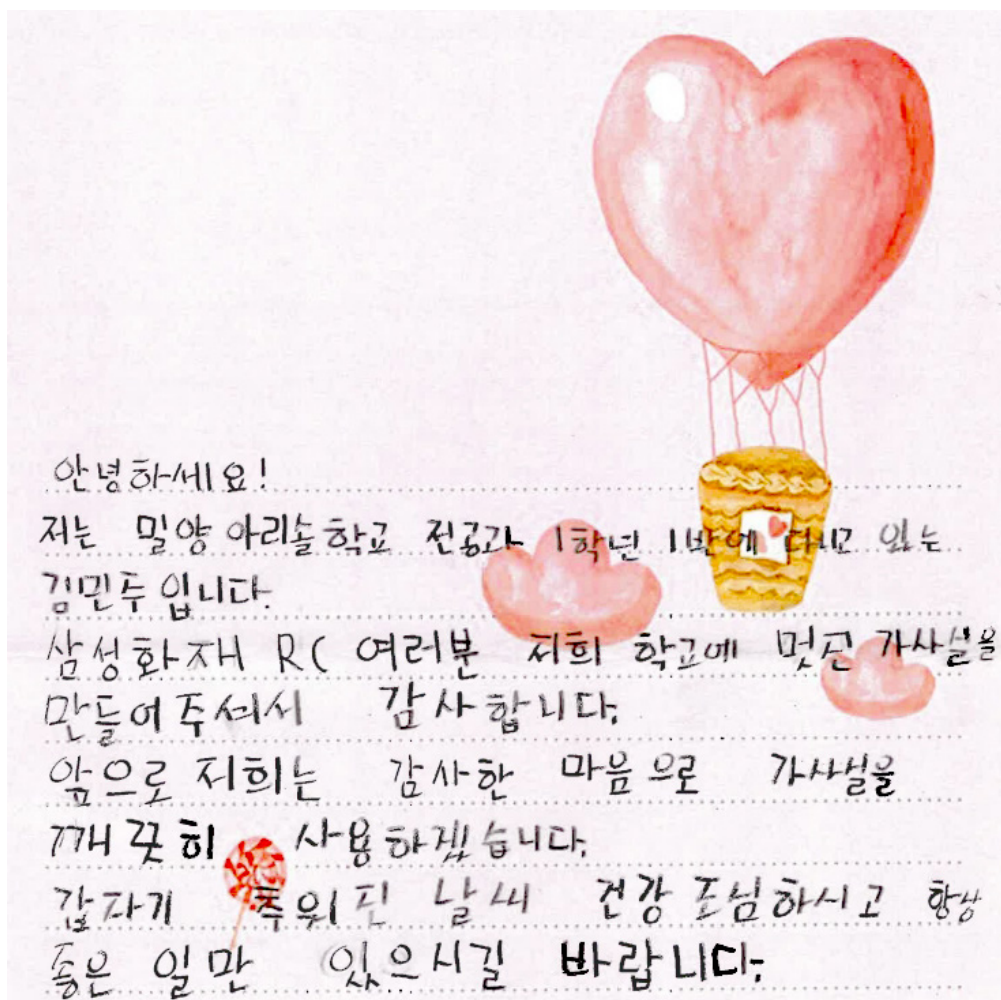 안녕하세요!
저는 밀양아리솔학교 전공과 1학년 1반에 다니고 있는
김민주입니다.
삼성화재 RC 여러분 저희 학교에 멋진 가사실을
만들어주셔서 감사합니다.
앞으로 저희는 감사한 마음으로 가사실을
깨끗히 사용하겠습니다.
갑자기 추워진 날씨 건강 조심하시고 항상
좋은 일만 있으시길 바랍니다.